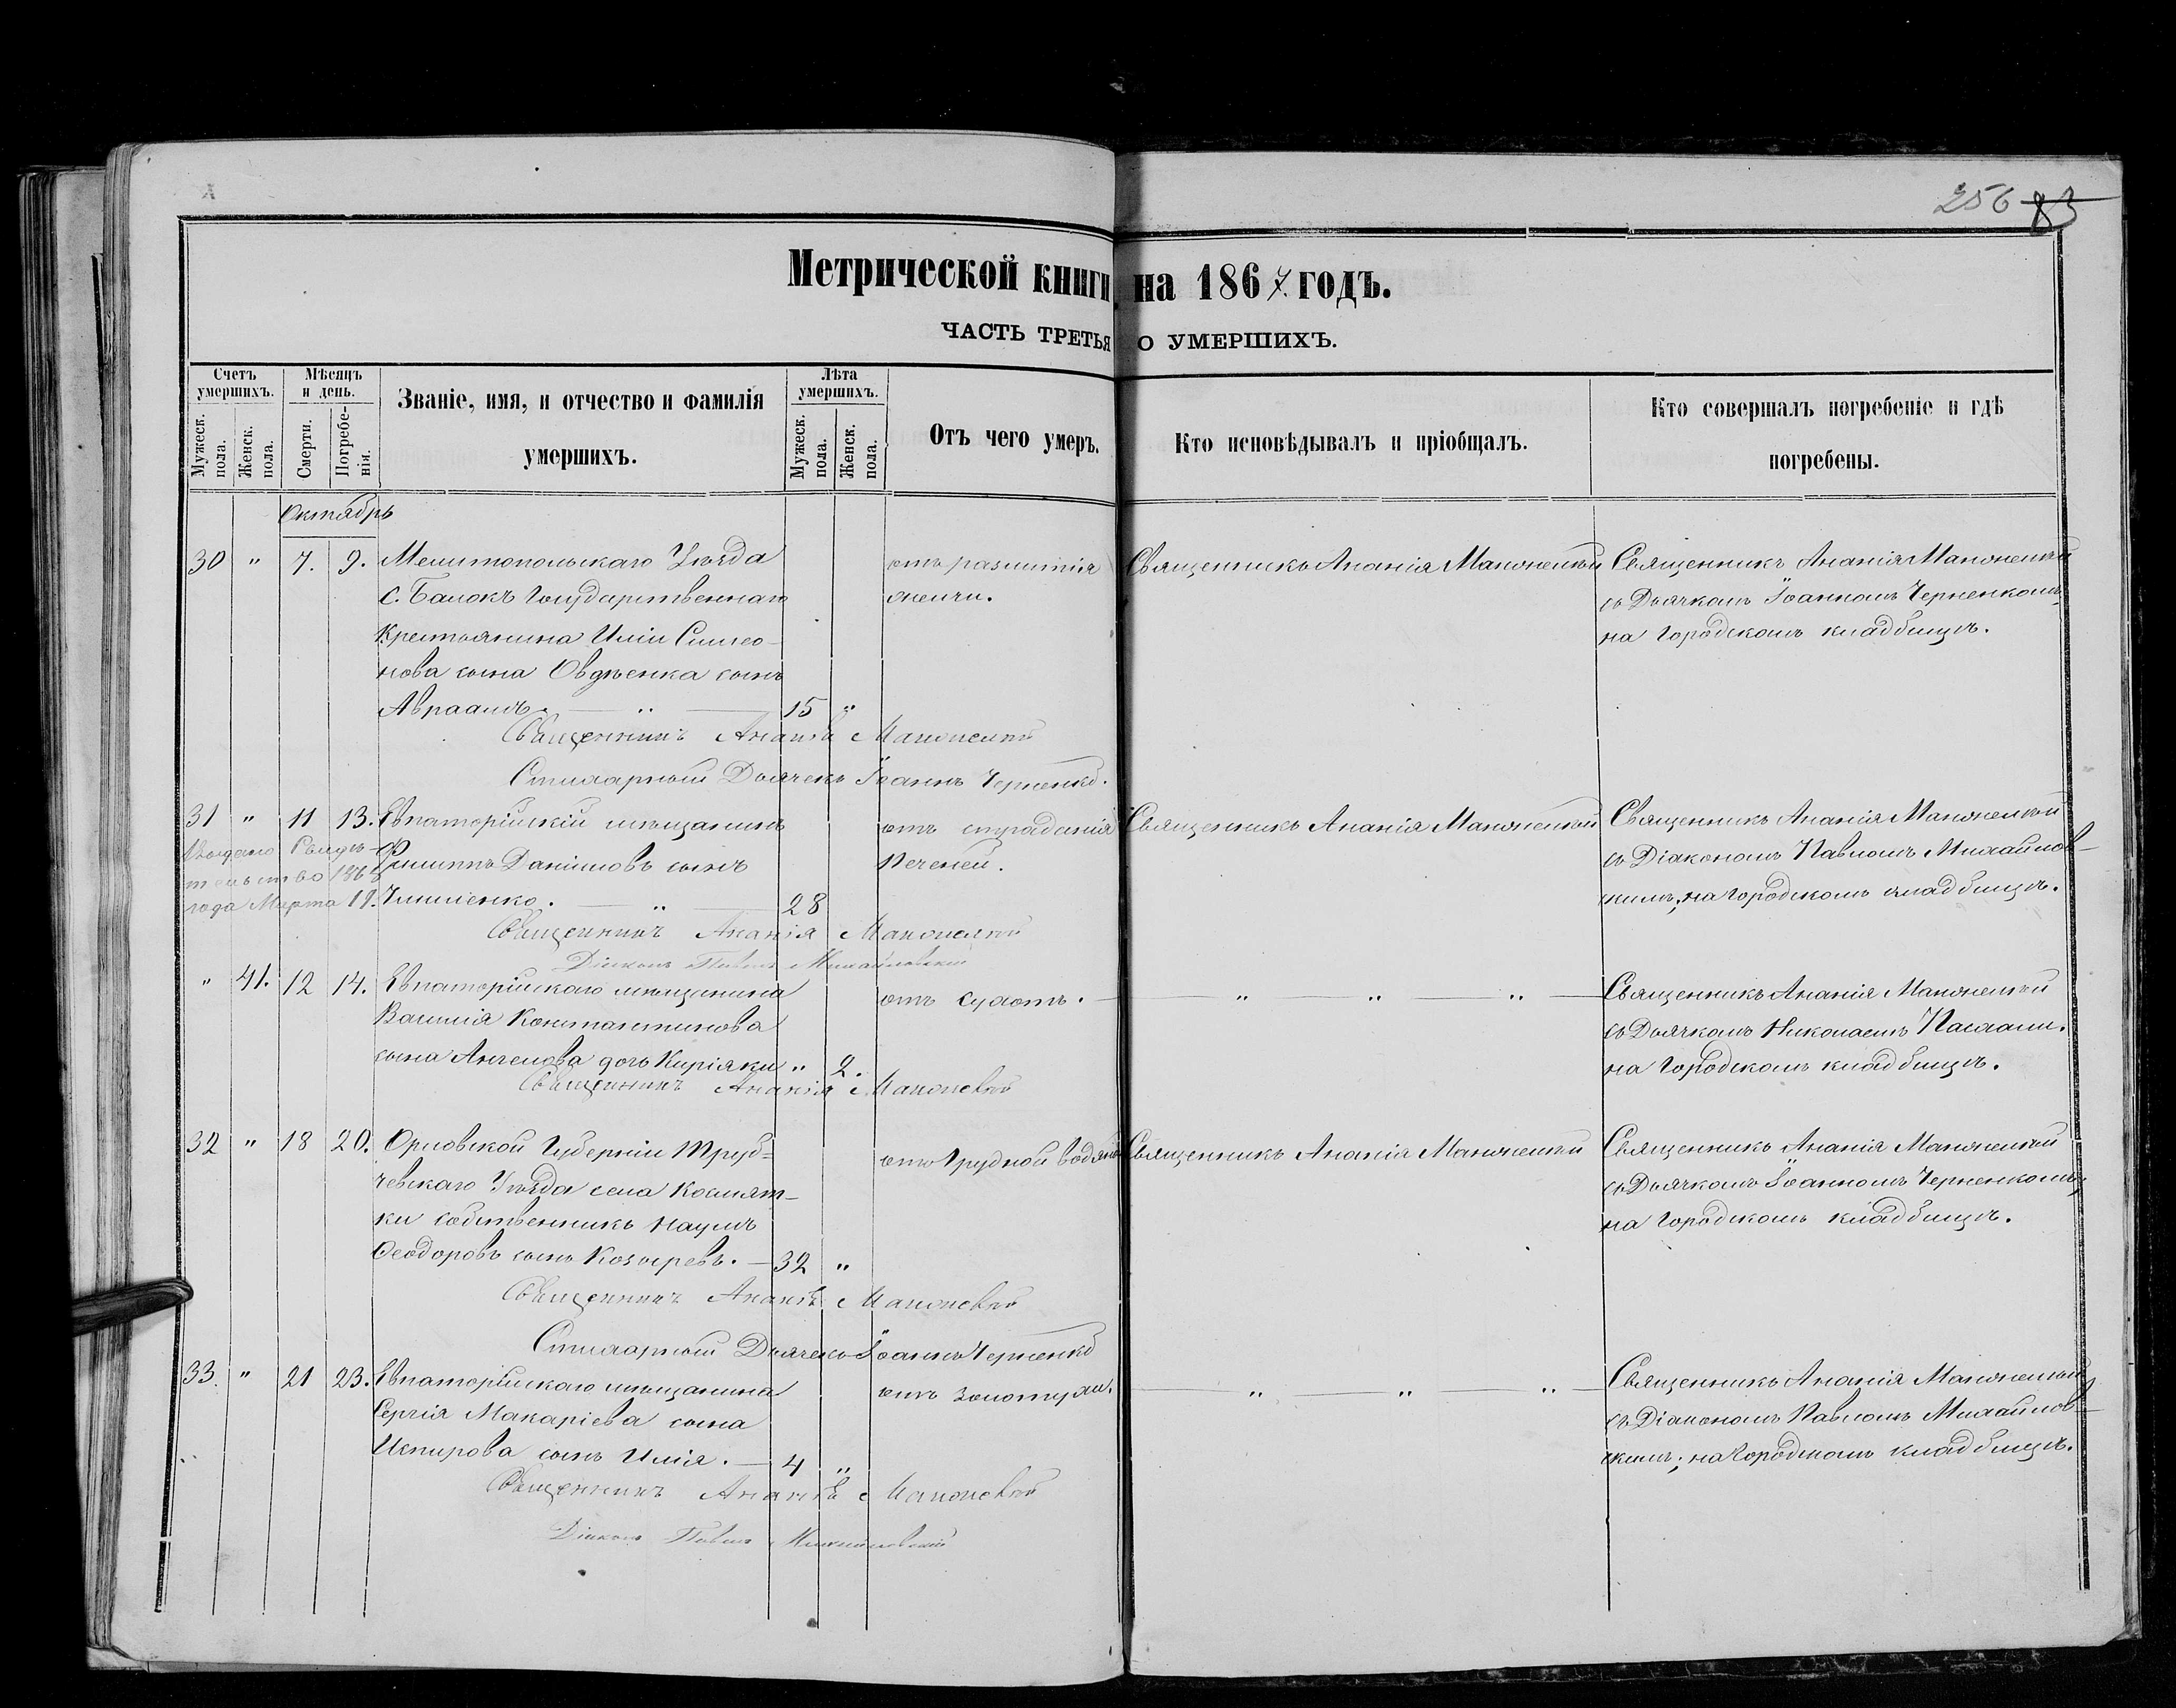 256 83
Метрической книги на 1867 годъ.
ЧАСТЬ ТРЕТЬЯ О УМЕРШИХЪ.
Счетъ умершихъ.
Мужеск. пола.
Женск. пола.
Мѣсяцъ и день.
Смерти.
Погребенія.
Званіе, имя, и отчество и фамилія
умершихъ.
Лѣта умершихъ.
Мужеск. пола.
Женск. пола.
Отъ чего умеръ.
Кто исповѣдывалъ и пріобщалъ.
Кто совершалъ погребеніе и гдѣ
погребены.
Октябрь
30 " 7. 9. Мелитопольскаго Уѣзда
с. Балокъ Государственнаго
Крестьянина Иліи Симео-
нова сына Овдѣенка сынъ
Авраамъ. — " — 15 "
отъ разлитія
желчи.
Священникъ Ананія
Священникъ Ананія
съ Дьячкомъ Іоанномъ Черненкомъ,
на Городскомъ кладбищѣ.
Священникъ Ананія
Стихарный Дьячекъ Іоаннъ Черненко.
31 " 11 13. Евпаторійскій мѣщанинъ
Филиппъ Даніиловъ сынъ
— " — 28
Выдано Свидѣ-
тельство 186
года Марта 11.
отъ страданія
Печеней.
Священникъ Ананія
Священникъ Ананія
съ Діакономъ Павломъ Михайлов-
скимъ; на Городскомъ кладбищѣ.
Священникъ Ананія
Діаконъ Павелъ Михайловскій
" 41. 12 14. Евпаторійскаго мѣщанина
Василія Константинова
сына Ангелова дочь Киріаки " 2.
отъ сухотъ. — " " " —
Священникъ Ананія
съ Дьячкомъ Николаемъ
на Городскомъ кладбищѣ.
Священникъ Ананія
32 " 18 20. Орловской Губерніи Труб=
чевскаго Уѣзда села
ки собственникъ Наумъ
Ѳеодоровъ сынъ Козыревъ. — 32 "
отъ Грудной водяной
Священникъ Ананія
Священникъ Ананія
съ Дьячкомъ Іоанномъ Черненкомъ,
на Городскомъ кладбищѣ.
Священникъ Ананія
Стихарный Дьячекъ Іоаннъ Черненко
33. " 21 23. Евпаторійскаго мѣщанина
Сергія Макаріева сына
Испирова сынъ Илія. — 4 "
отъ золотухи. — " — " — " —
Священникъ Ананія
съ Діакономъ Павломъ Михайлов-
скимъ; на Городскомъ кладбищѣ.
Священникъ Ананія
Діаконъ Павелъ Михайловскій